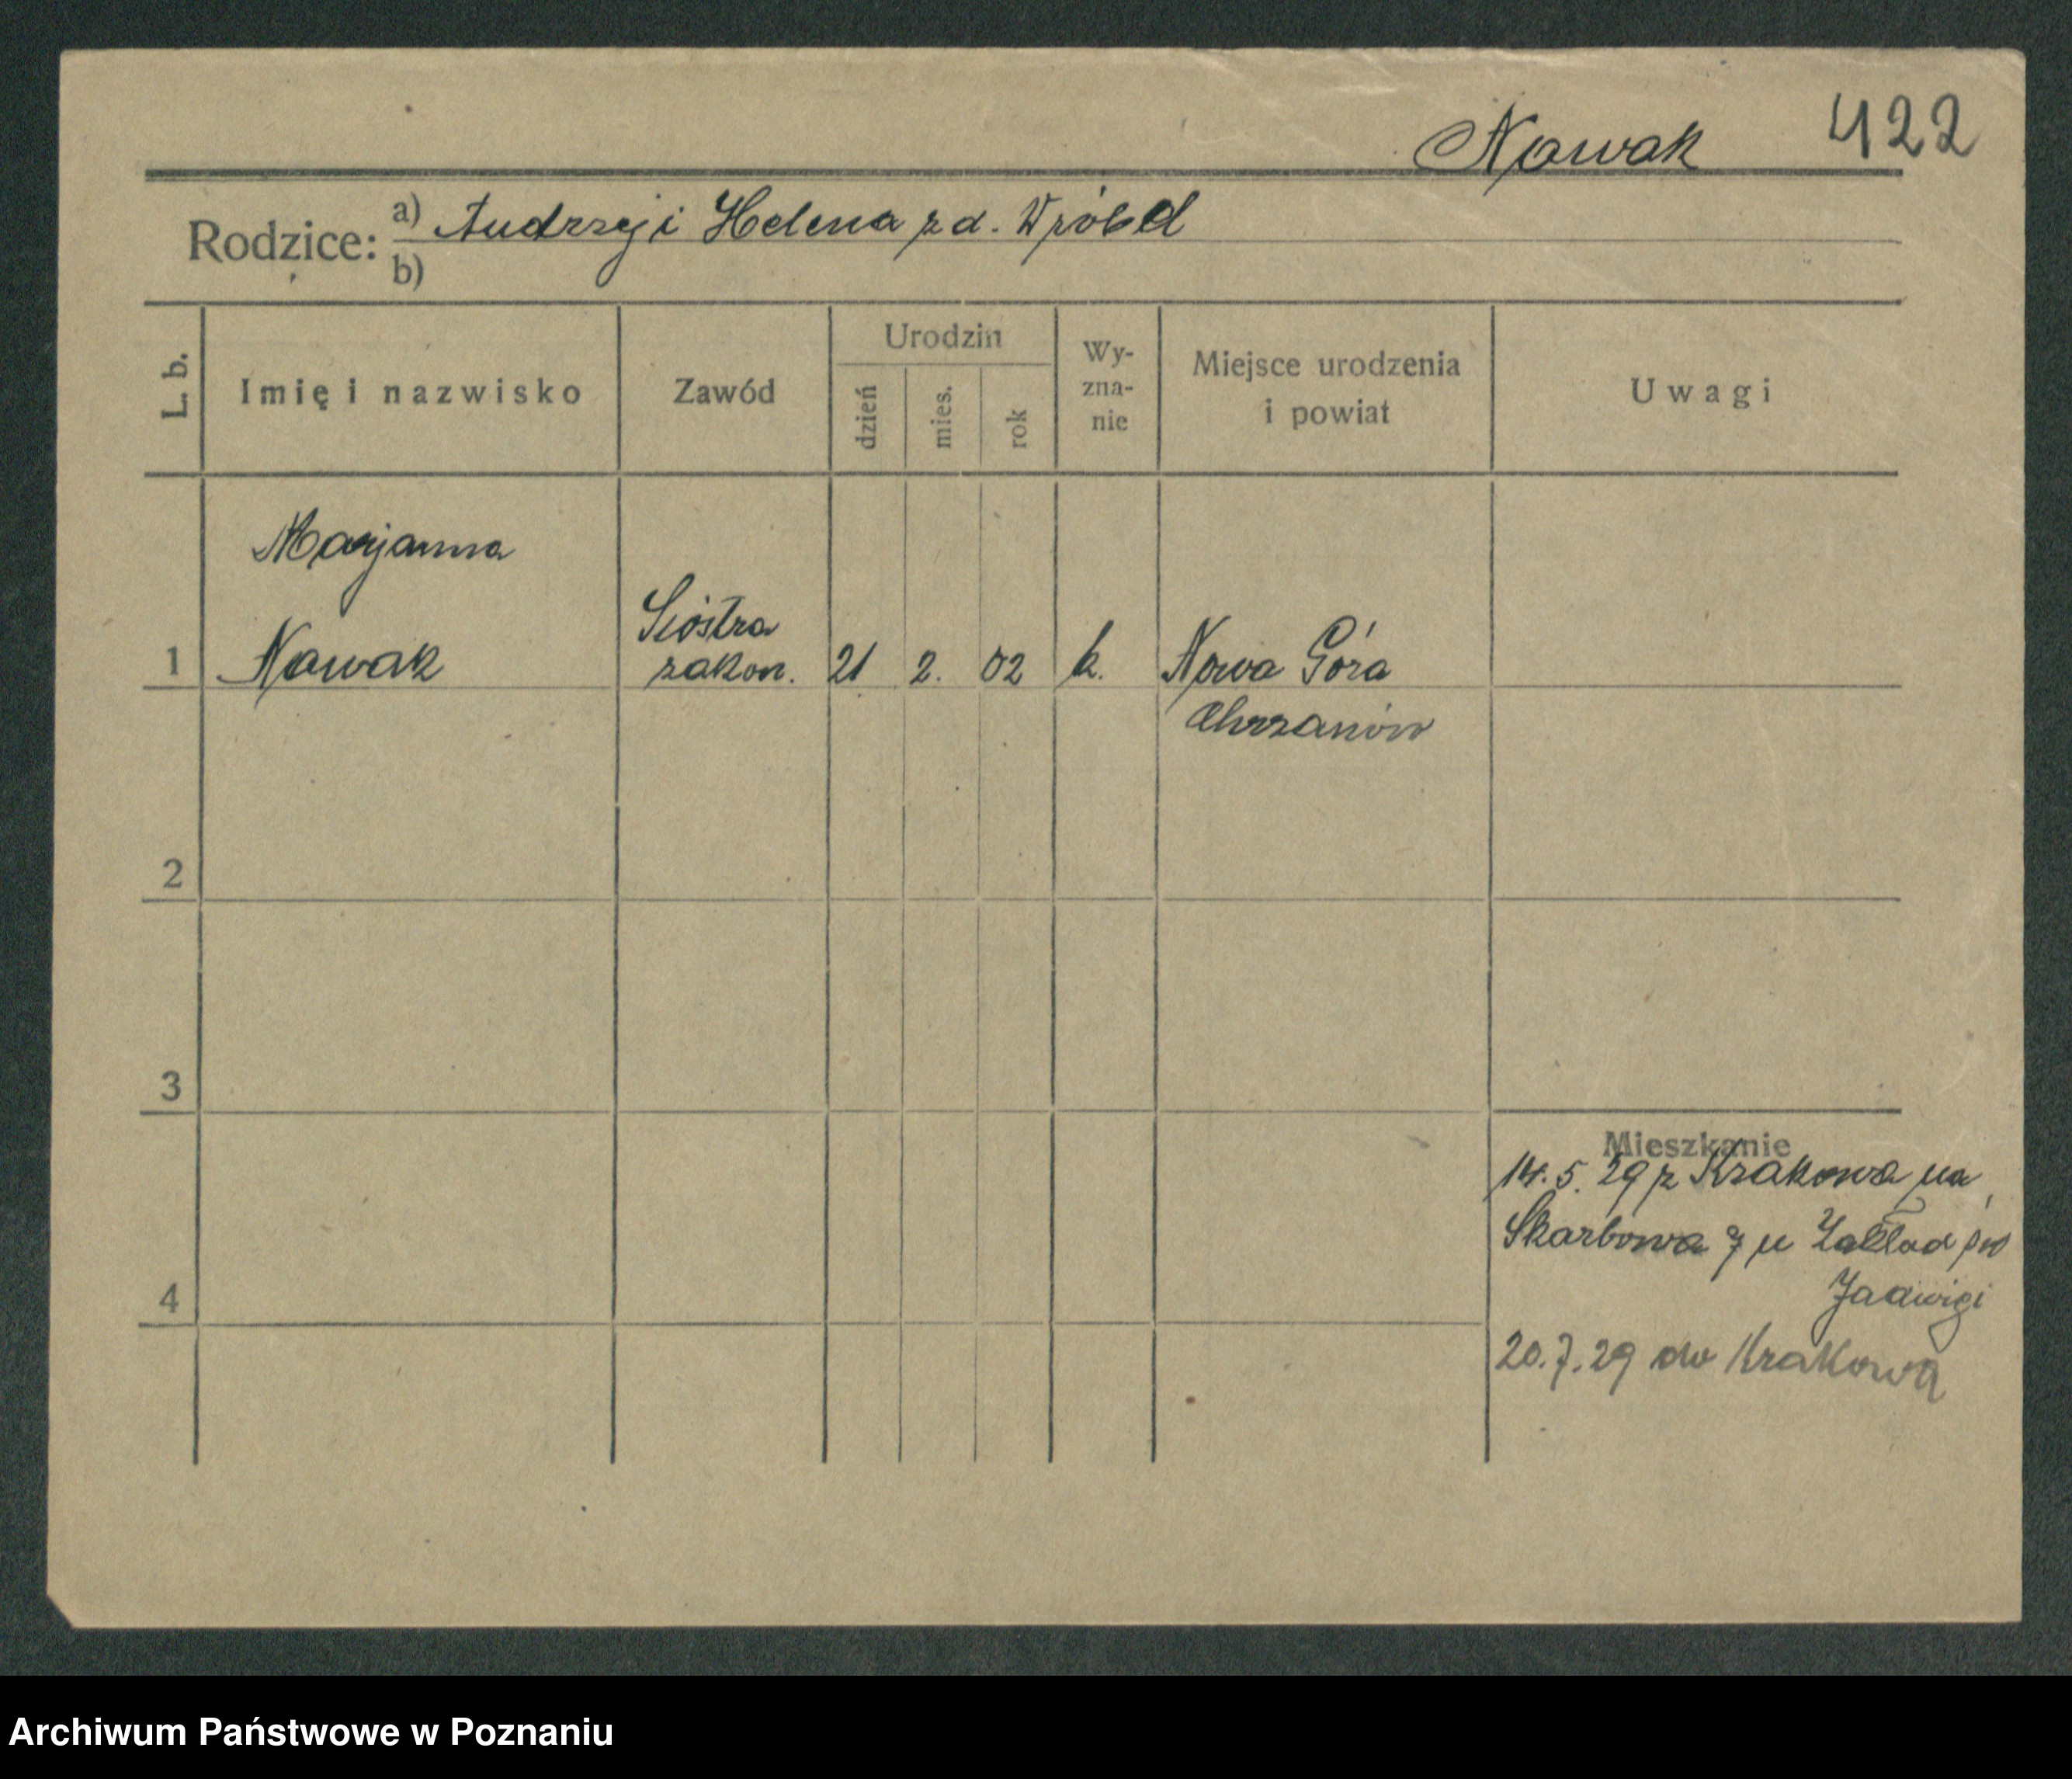 Nowak 422
Rodzice: a) Andrzej i Helena z d. Wróbel
b)
L. b. Imię i nazwisko Zawód Urodzin dzień mies. rok Wy-zna-nie Miejsce urodzenia i powiat Uwagi
Marjanna
Siostra
1 Nowak zakon. 21 2. 02 k. Nowa Góra
Chrzanów
2
3
Mieszkanie
14. 5. 29 z Krakowa na
Skarbowa 7 u Zakład św
Jadwigi
4
20. 7. 29 do Krakowa
Archiwum Państwowe w Poznaniu